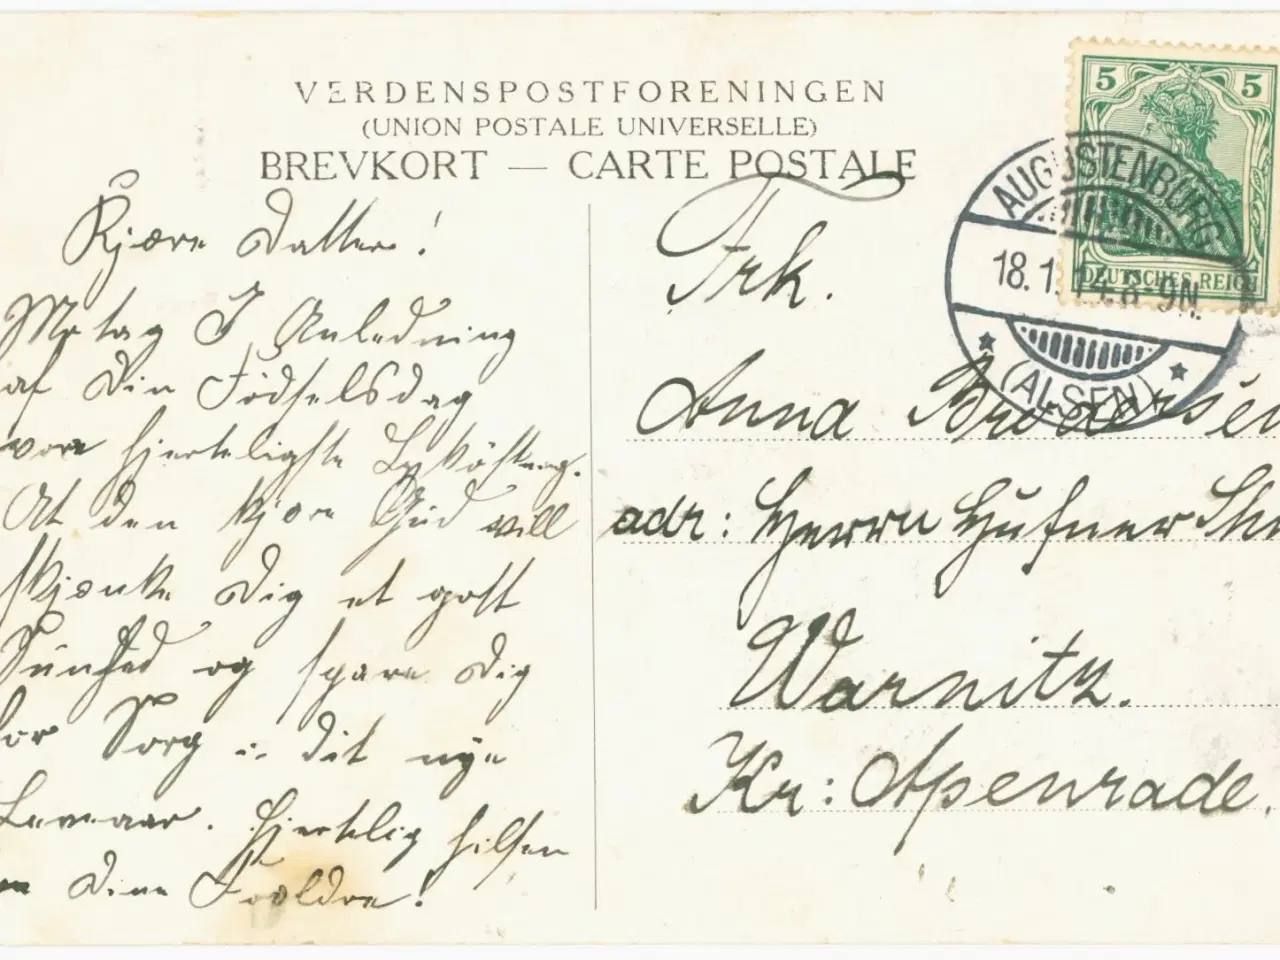 VERDENSPOSTFORENINGEN
(UNION POSTALE UNIVERSELLE)
BREVKORT — CARTE POSTALE
Kjære Datter!
Motag I Anledning
af Din Födselsdag
vore hjerteligste Lykönskning.
At den kjære Gud vill
skjænke Dig et gott
Sundhed og spare Dig
for Sorg i dit nye
Leveaar. Hjertelig hilsen
Dine Forældre!
5 5
DEUTSCHES REICH
AUGUSTENBURG
18.1.14. 8-9N.
(ALSEN)
Frk.
Anna Brodersen
adr: Herrn Hufner
Warnitz.
Kr: Apenrade.